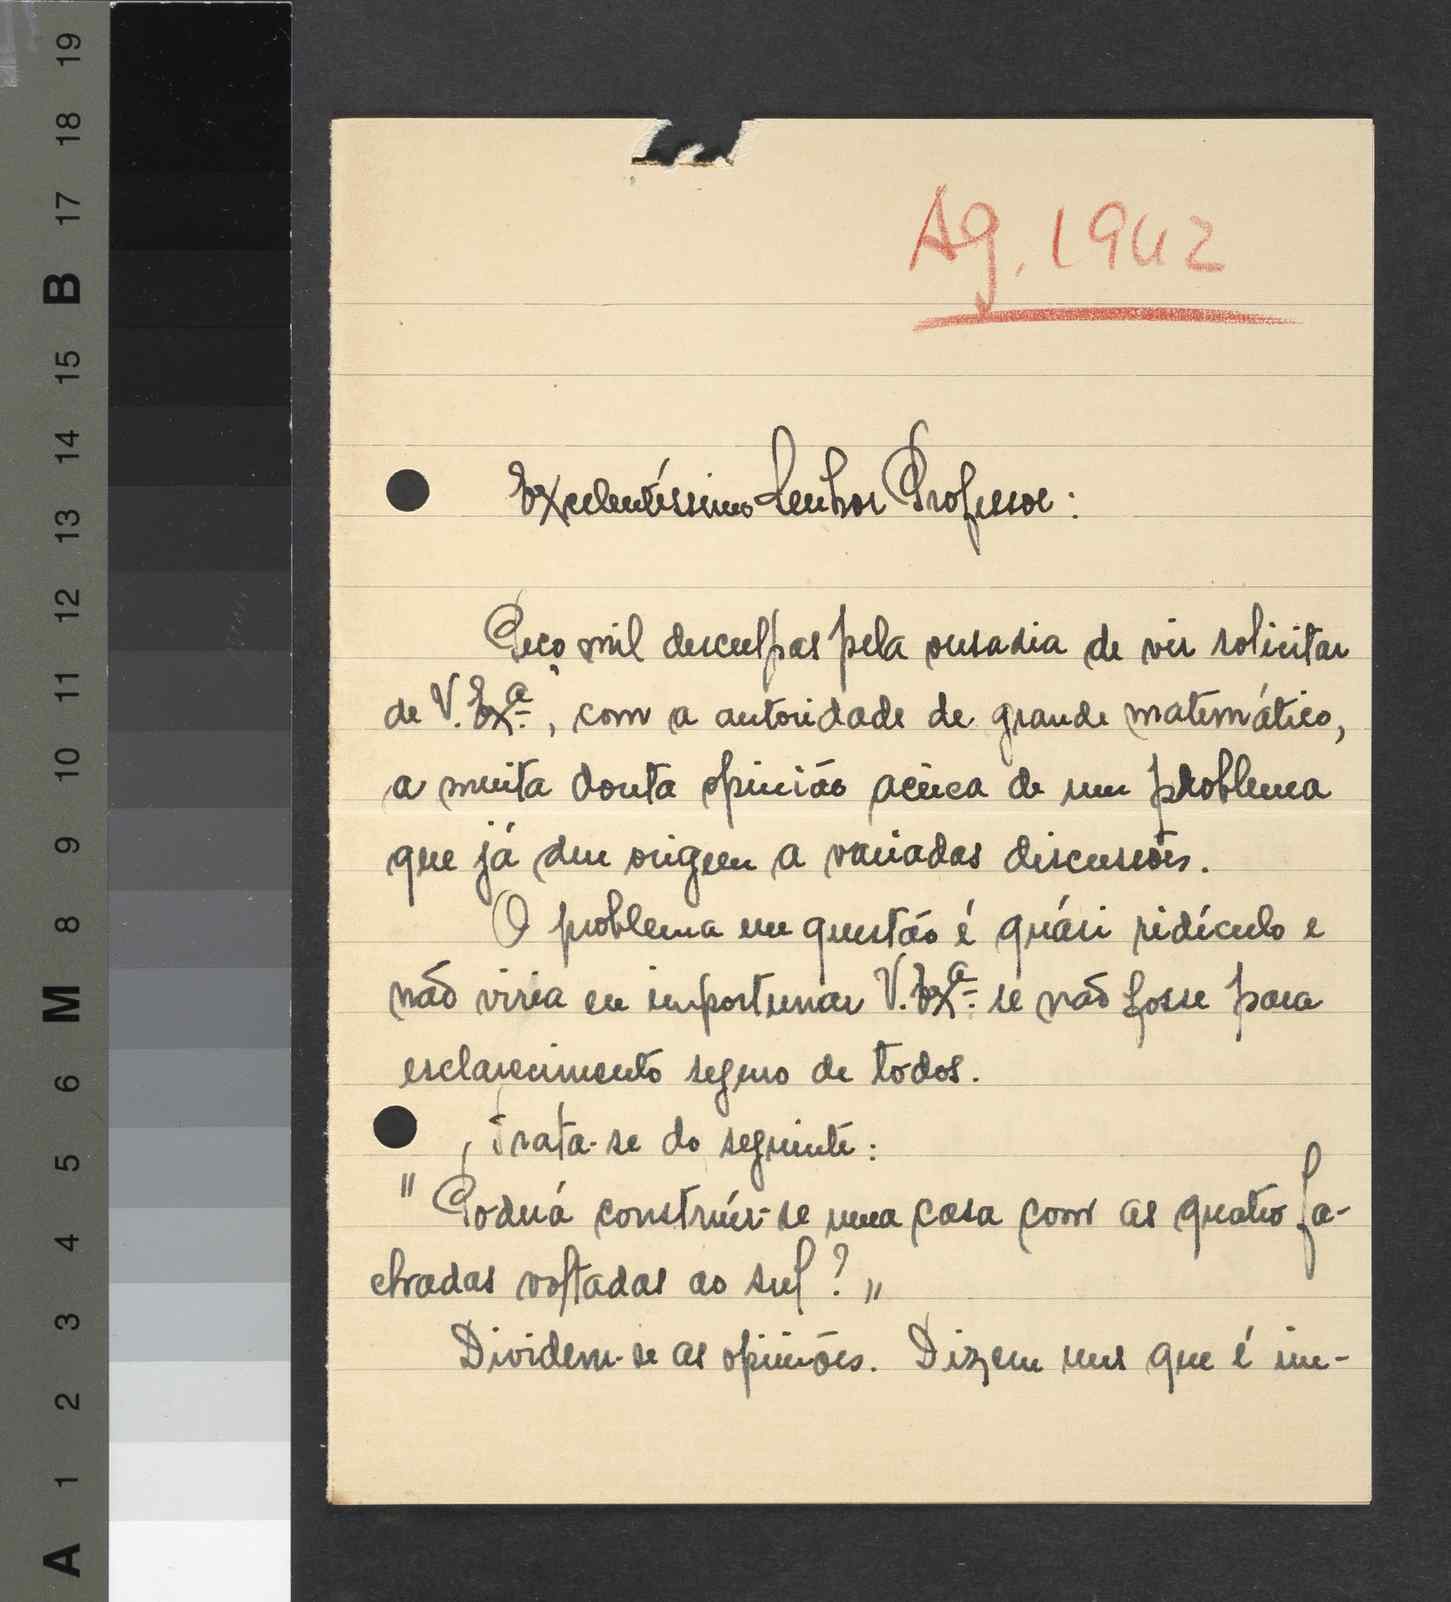 19
18
17
B
15
14
13
12
11
10
9
8
M
6
5
4
3
2
1
A
Ag. 1942
Excelentíssimo Senhor Professor:
Peço mil desculpas pela ousadia de vir solicitar
de V. Exª., com a autoridade de grande matemático,
a muita douta opinião acêrca de um problema
que já deu origem a variadas discussões.
O problema em questão é quási ridículo e
não viria eu importunar V. Exª. se não fosse para
esclarecimento seguro de todos.
Trata-se do seguinte:
"Poderá construír-se uma casa com as quatro fa-
chadas voltadas ao sul?"
Dividem-se as opiniões. Dizem uns que é im-